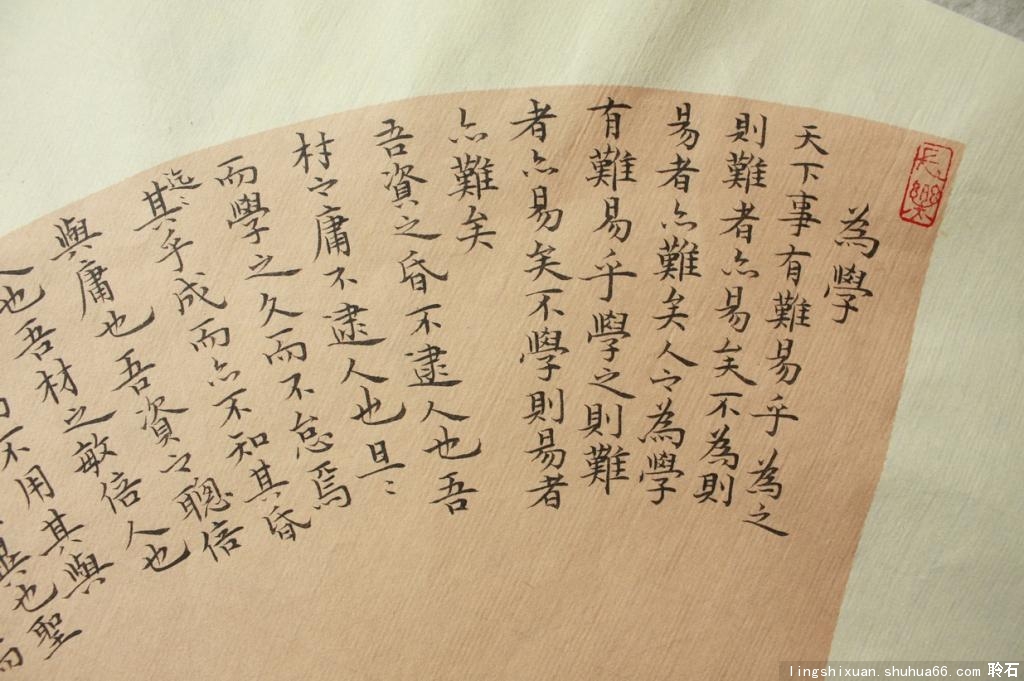 長樂
為學
天下事有難易乎為之
則難者亦易矣不為則
易者亦難矣人之為學
有難易乎學之則難
者亦易矣不學則易者
亦難矣
吾資之昏不逮人也吾
材之庸不逮人也旦〻
而學之久而不怠焉
迄〻其乎成而亦不知其昏
與庸也吾資之聰倍
人也吾材之敏倍人也
而不用其與
異也聖
lingshixuan.shuhua66.com 聆石